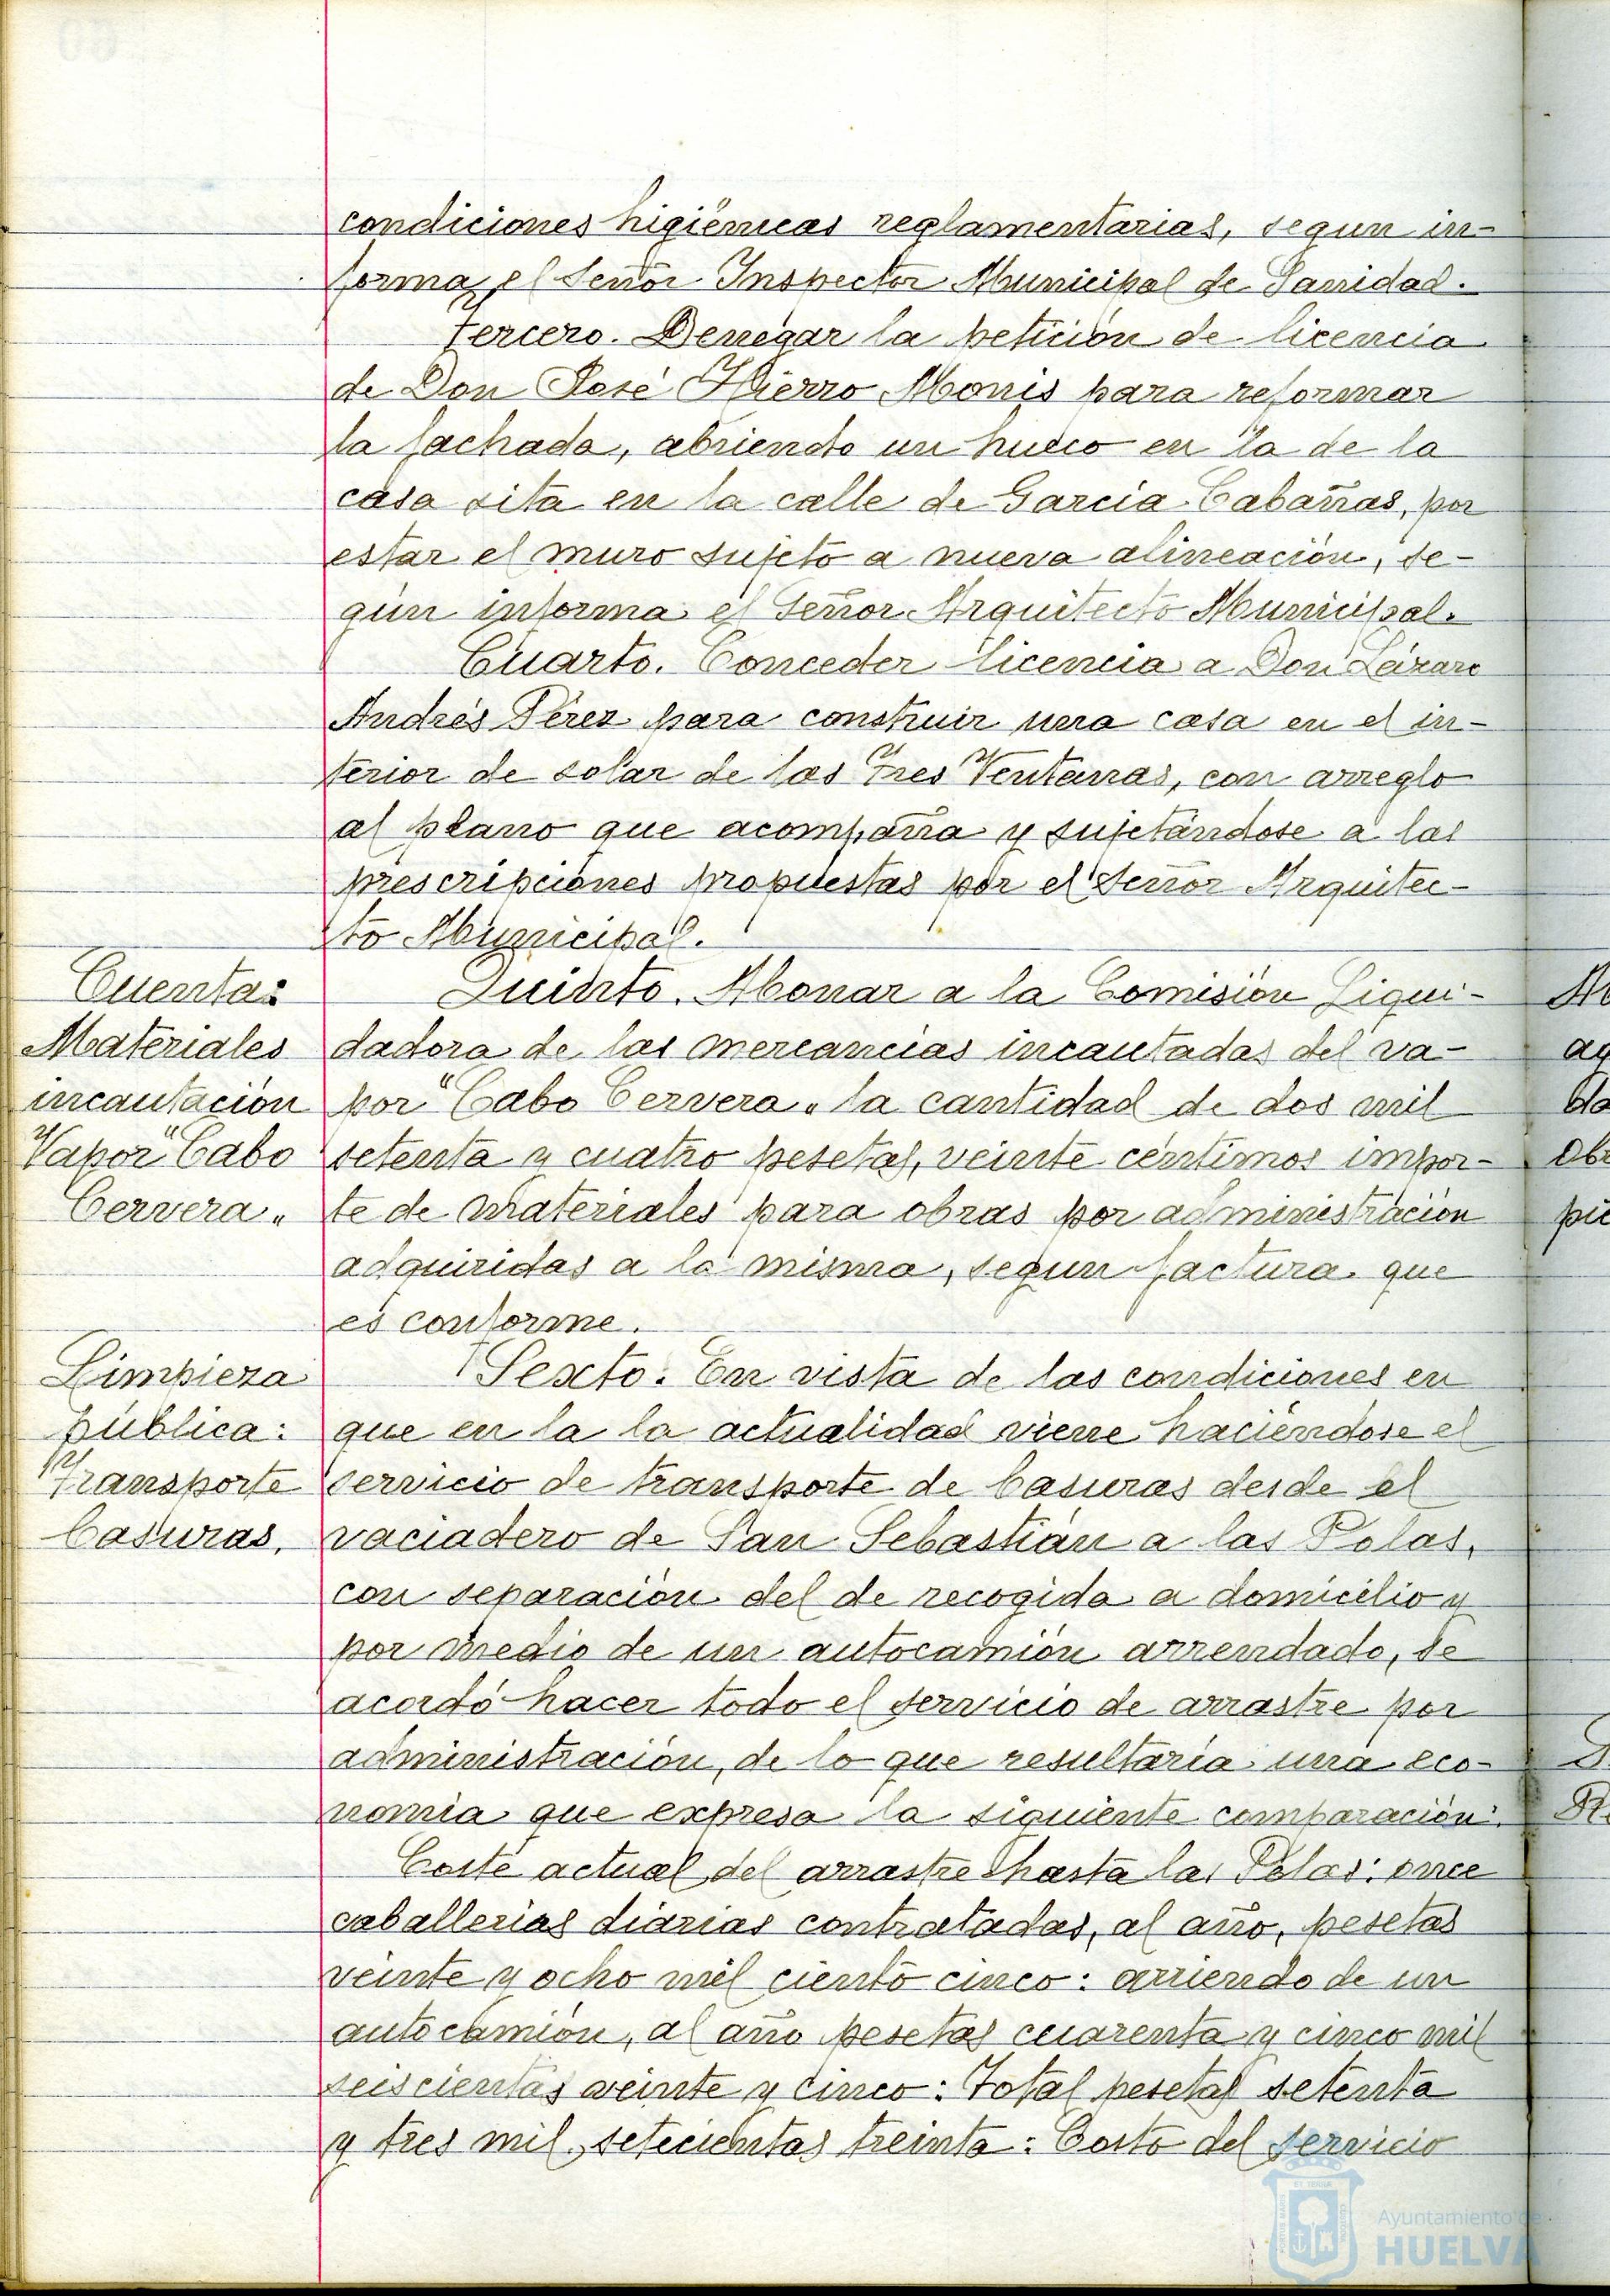 condiciones higiénicas reglamentarias, segun in-
forma el Señor Inspector Municipal de Sanidad.
Tercero. Denegar la petición de licencia
de Don José Hierro Monis para reformar
la fachada, abriendo un hueco en la de la
casa sita en la calle de Garcia Cabañas, por
estar el muro sujeto a nueva alineación, se-
gún informa el Señor Arquitecto Municipal.
Cuarto. Conceder licencia a Don Lázaro
Andrés Pérez para construir una casa en el in-
terior de solar de las Tres Ventanas, con arreglo
al plano que acompaña y sujetándose a las
prescripciones propuestas por el Señor Arquitec-
to Municipal.
Cuenta:
Materiales
incautación
Vapor "Cabo
Cervera"
Quinto. Abonar a la Comisión Liqui-
dadora de las mercancías incautadas del va-
por "Cabo Cervera" la cantidad de dos mil
setenta y cuatro pesetas, veinte céntimos impor-
te de materiales para obras por administración
adquiridas a la misma, segun factura que
es conforme.
Limpieza
pública:
Transporte
basuras.
Sexto: En vista de las condiciones en
que en la la actualidad viene haciéndose el
servicio de transporte de basuras desde el
vaciadero de San Sebastián a las Polas,
con separación del de recogida a domicilio y
por medio de un autocamión arrendado, se
acordó hacer todo el servicio de arrastre por
administración, de lo que resultaría una eco-
nomía que expresa la siguiente comparación:
Coste actual del arrastre hasta las Polas: once
caballerias diarias contratadas, al año, pesetas
veinte y ocho mil ciento cinco: arriendo de un
autocamión, al año pesetas cuarenta y cinco mil
seiscientas veinte y cinco: Total pesetas setenta
y tres mil, setecientas treinta: Costo del servicio
Ayuntamiento de
HUELVA